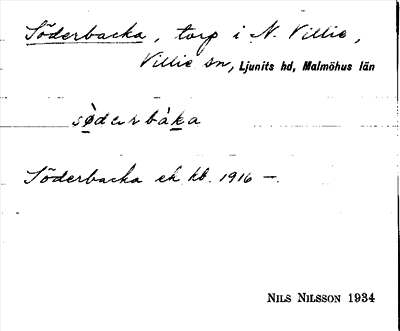 Söderbacka, torp i N. Villie,
Villie sn, Ljunits hd, Malmöhus län
sø̀dərbàka
Söderbacka ek kb. 1916 —.
NILS NILSSON 1934